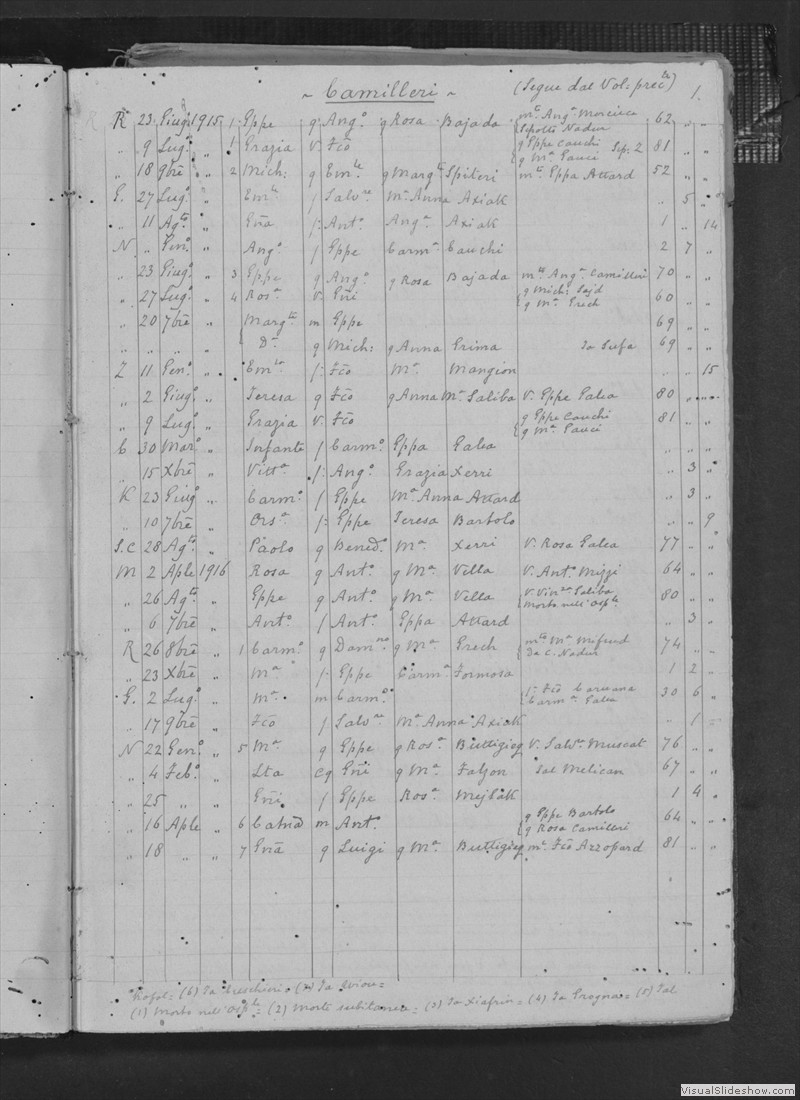 ~ Camilleri ~ (Segue dal Vol: precte) 1.
R 23 Giugo 1915 1 Gppe q Ango q Rosa Bajada { mto Anga 62 „ „
Sepolto Nadur
„ 9 Lugo „ 1 Grazia v. Fco { q Gppe Cauchi Sp: 2 81 „ „
q Ma Gauci
„ 18 9bre „ 2 Mich: q Emle q Margta Spiteri mto Gppa Attard 52 „ „
G. 27 Lugo „ Emle f Salvre Ma Anna Axiak „ 5 „
„ 11 Agto „ Gna f: Anto Anga Axiak 1 „ 14
N „ Geno „ Ango f Gppe Carma Cauchi 2 7 „
„ 23 Giugo „ 3 Gppe q Ango q Rosa Bajada mto Anga Camilleri 70 „ „
„ 27 Lugo „ 4 Rosa v. Gni { q Mich: Sajd 60 „ „
q Ma Grech
„ 20 7bre „ Margta m Gppe 69 „
„ „ „ „ Da q Mich: q Anna Grima 69 „ „
Z 11 Geno „ Emle f: Fco Ma Mangion „ „ 15
„ 2 Giugo „ Teresa q Fco q Anna Ma Saliba V. Gppe Galea 80 „ „
„ 9 Lugo „ Grazia v. Fco { q Gppe Cauchi 81 „ „
q Ma Gauci
C 30 Marzo „ Infante f Carmo Gppa Galea „ „ „
„ 15 Xbre „ Vitta f: Ango Grazia Xerri „ 3 „
K 23 Giugo „ Carmo f Gppe Ma Anna Attard „ 3 „
„ 10 7bre „ Orsa f: Gppe Teresa Bartolo „ „ 9
S.C 28 Agto „ Paolo q Benedo Ma Xerri V. Rosa Galea 77 „ „
M 2 Aple 1916 Rosa q Anto q Ma Vella V. Anto Mizzi 64 „ „
„ 26 Agto „ Gppe q Anto q Ma Vella { V. Vinza Saliba 80 „ „
Morto nell'Osple
„ 6 7bre „ Anto f Anto Gppa Attard „ 3 „
R 26 8bre „ 1 Carmo q Damno q Ma Grech { mto Ma Mifsud 74 „ „
Da C. Nadur
„ 23 Xbre „ Ma f: Gppe Carma Formosa 1 2 „
G. 2 Lugo „ Ma m Carmo { f: Fco Caruana 30 6 „
Carma Galea
„ 17 9bre „ Fco f Salvre Ma Anna Axiak „ 1 „
N 22 Geno „ 5 Ma q Gppe q Rosa Buttigieg V. Salvre Muscat 76 „ „
„ 4 Febo „ Lta cq Gni q Ma Falzon tal Melican 67 „ „
„ 25 „ „ Gni f Gppe Rosa Mejlak 1 4 „
„ 16 Aple 6 m Anto { q Gppe Bartolo 64 „ „
q Rosa Camilleri
„ 18 „ „ 7 Gna q Luigi q Ma Buttigieg ma Fco Azzopard 81 „ „
= (6) Ta = (7) Ta =
(1) Morto nell'Osple = (2) Morte subitanea = (3) Ta = (4) Ta = (5) Tal
VisualSlideshow.com